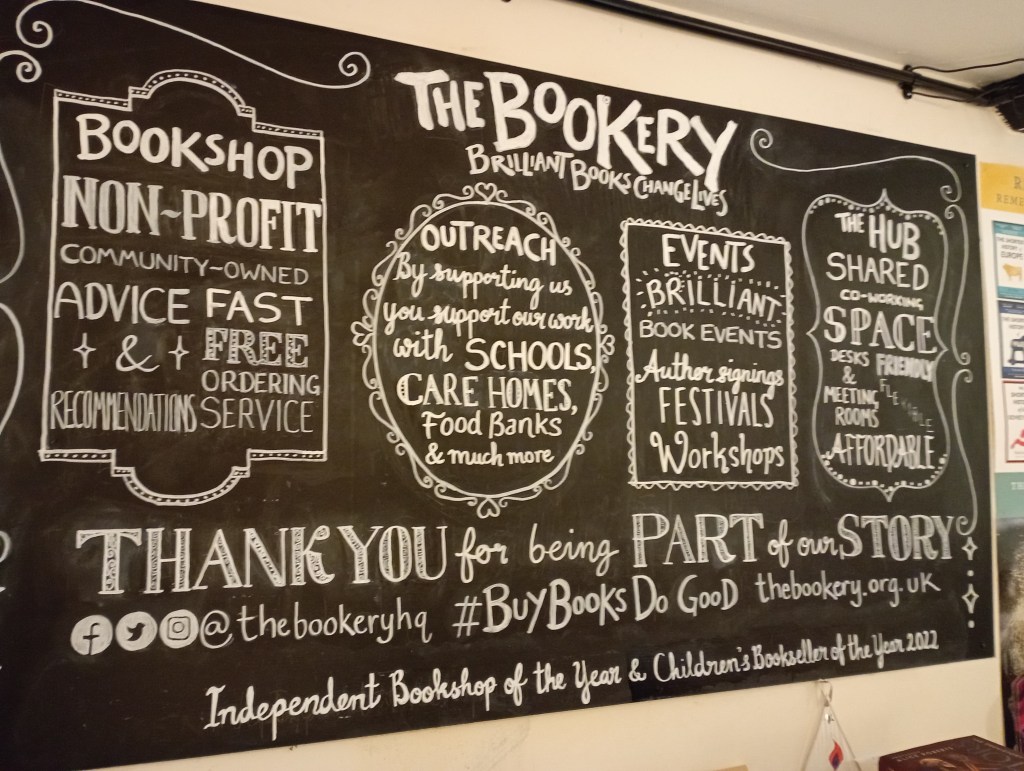 THE BOOKERY
BRILLIANT BOOKS CHANGE LIVES
BOOKSHOP
NON-PROFIT
COMMUNITY-OWNED
ADVICE
&
RECOMMENDATIONS
FAST
FREE
ORDERING
SERVICE
OUTREACH
By supporting us
you support our work
with SCHOOLS,
CARE HOMES,
Food Banks
& much more
EVENTS
BRILLIANT
BOOK EVENTS
Author signings
FESTIVALS
Workshops
THE HUB
SHARED
CO-WORKING
SPACE
DESKS
&
MEETING
ROOMS
FRIENDLY
AFFORDABLE
THANK YOU for being PART of our STORY
@thebookeryhq #BUYBOOKSDOGOOD thebookery.org.uk
Independent Bookshop of the Year & Children's Bookseller of the Year 2022